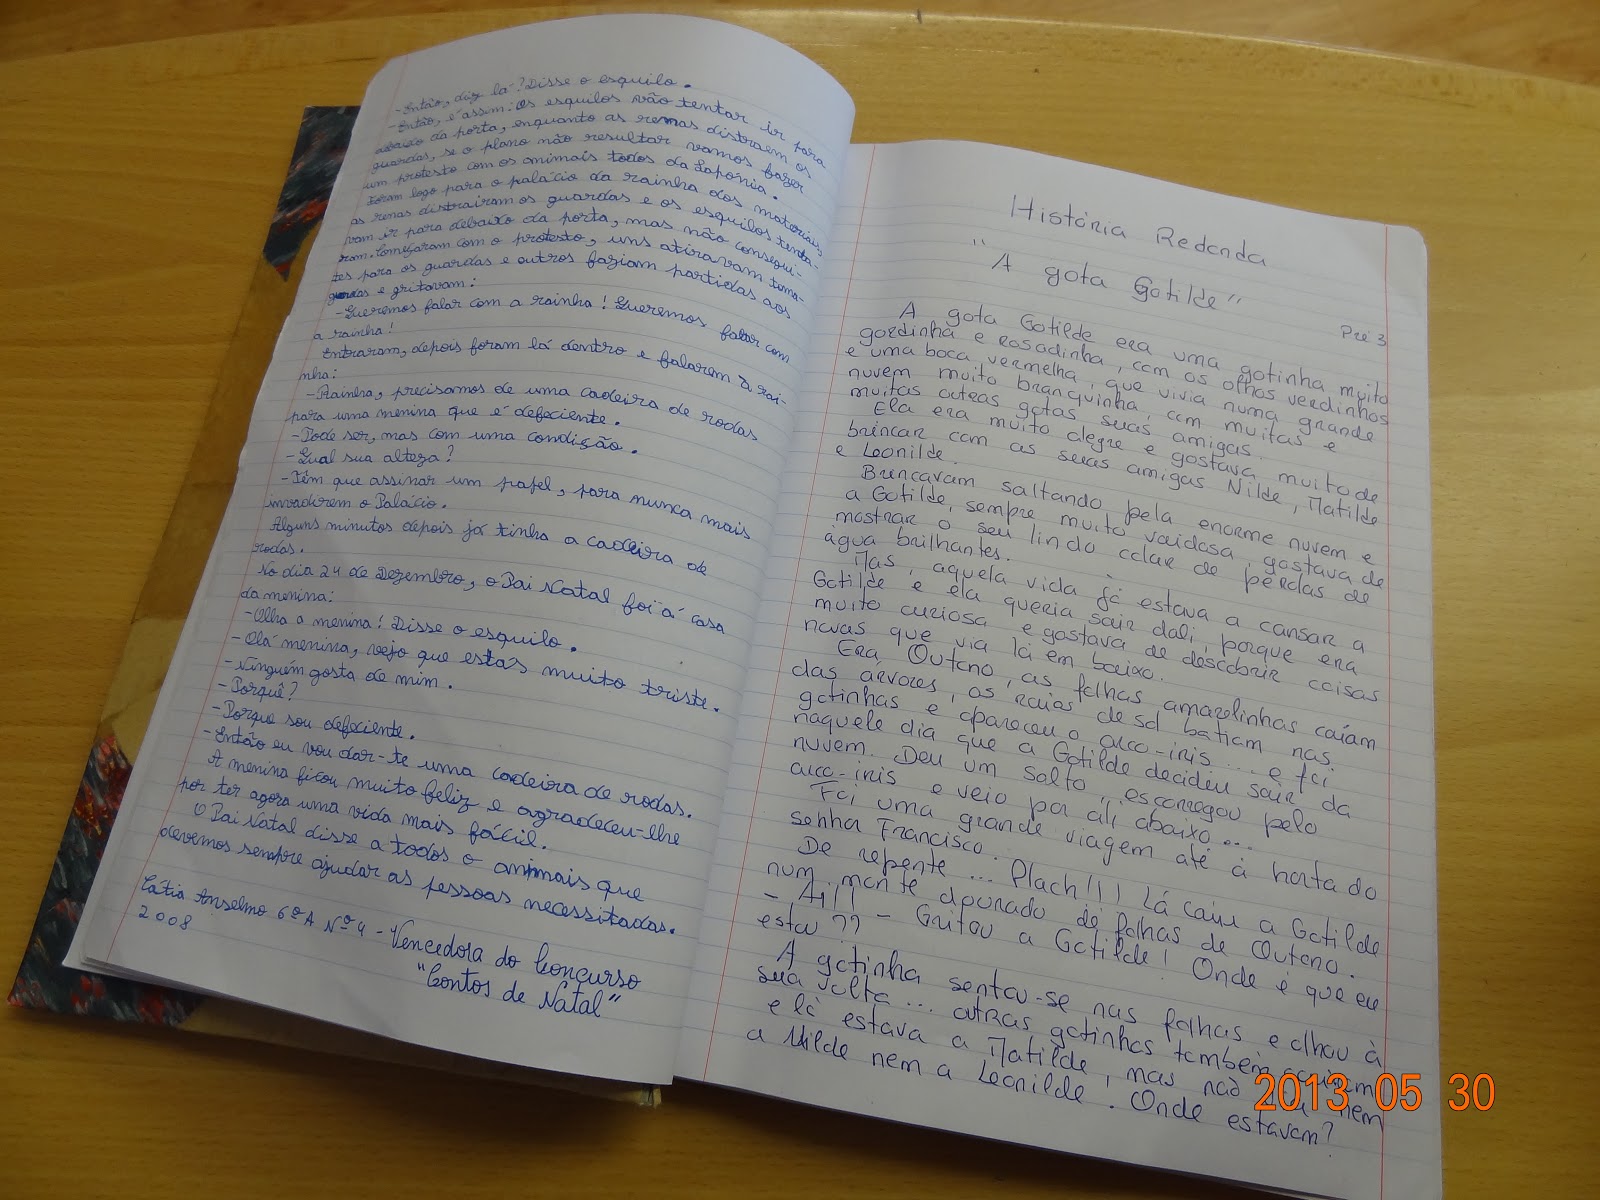 -Então, diz lá? Disse o esquilo.
-Então, é assim: Os esquilos vão tentar ir para
debaixo da porta, enquanto as renas distraem os
guardas, se o plano não resultar vamos fazer
um protesto com os animais todos da Lapónia.
Foram logo para o palácio da rainha dos materiais,
as renas distrairam os guardas e os esquilos tenta-
vam ir para debaixo da porta, mas não consegui-
ram. Começaram com o protesto, uns atiravam toma-
tes para os guardas e outros faziam partidas aos
guardas e gritavam:
-Queremos falar com a rainha! Queremos falar com
a rainha!
Entraram, depois foram lá dentro e falarem à rai-
nha:
-Rainha, precisamos de uma cadeira de rodas
para uma menina que é defeciente.
-Pode ser, mas com uma condição.
-Qual sua alteza?
-Têm que assinar um papel, para nunca mais
invadirem o Palácio.
Alguns minutos depois já tinha a cadeira de
rodas.
No dia 24 de Dezembro, o Pai Natal foi á casa
da menina:
-Olha a menina! Disse o esquilo.
-Olá menina, vejo que estas muito triste.
-Ninguém gosta de mim.
-Porquê?
-Porque sou defeciente.
-Então eu vou dar-te uma cadeira de rodas.
A menina ficou muito feliz e agradeceu-lhe
por ter agora uma vida mais fácil.
O Pai Natal disse a todos o animais que
devemos sempre ajudar as pessoas necessitadas.
Cátia Anselmo 6ºA Nº4 - Vencedora do Concurso
2008 "Contos de Natal"
História Redonda
"A gota Gotilde"
Pré 3
A gota Gotilde era uma gotinha muito
gordinha e rosadinha, com os olhos verdinhos
e uma boca vermelha, que vivia numa grande
nuvem muito branquinha, com muitas e
muitas outras gotas suas amigas.
Ela era muito alegre e gostava muito de
brincar com as suas amigas Nilde, Matilde
e Leonilde.
Brincavam saltando pela enorme nuvem e
a Gotilde, sempre muito vaidosa, gostava de
mostrar o seu lindo colar de pérolas de
água brilhantes.
Mas, aquela vida já estava a cansar a
Gotilde e ela queria sair dali, porque era
muito curiosa e gostava de descobrir coisas
novas que via lá em baixo.
Era Outono, as folhas amarelinhas caíam
das árvores, os raios de sol batiam nas
gotinhas e apareceu o arco-iris... e foi
naquele dia que a Gotilde decidiu sair da
nuvem. Deu um salto, escorregou pelo
arco-iris e veio por ali abaixo....
Foi uma grande viagem até à horta do
senhor Francisco.
De repente... Plach!!! Lá caiu a Gotilde
num monte apurado de folhas de Outono.
- Ai!! - Gritou a Gotilde! Onde é que eu
estou??
A gotinha sentou-se nas folhas e olhou à
sua volta... outras gotinhas também caíram
e lá estava a Matilde, mas não viu nem
a Nilde nem a Leonilde. Onde estavam?
2013 05 30